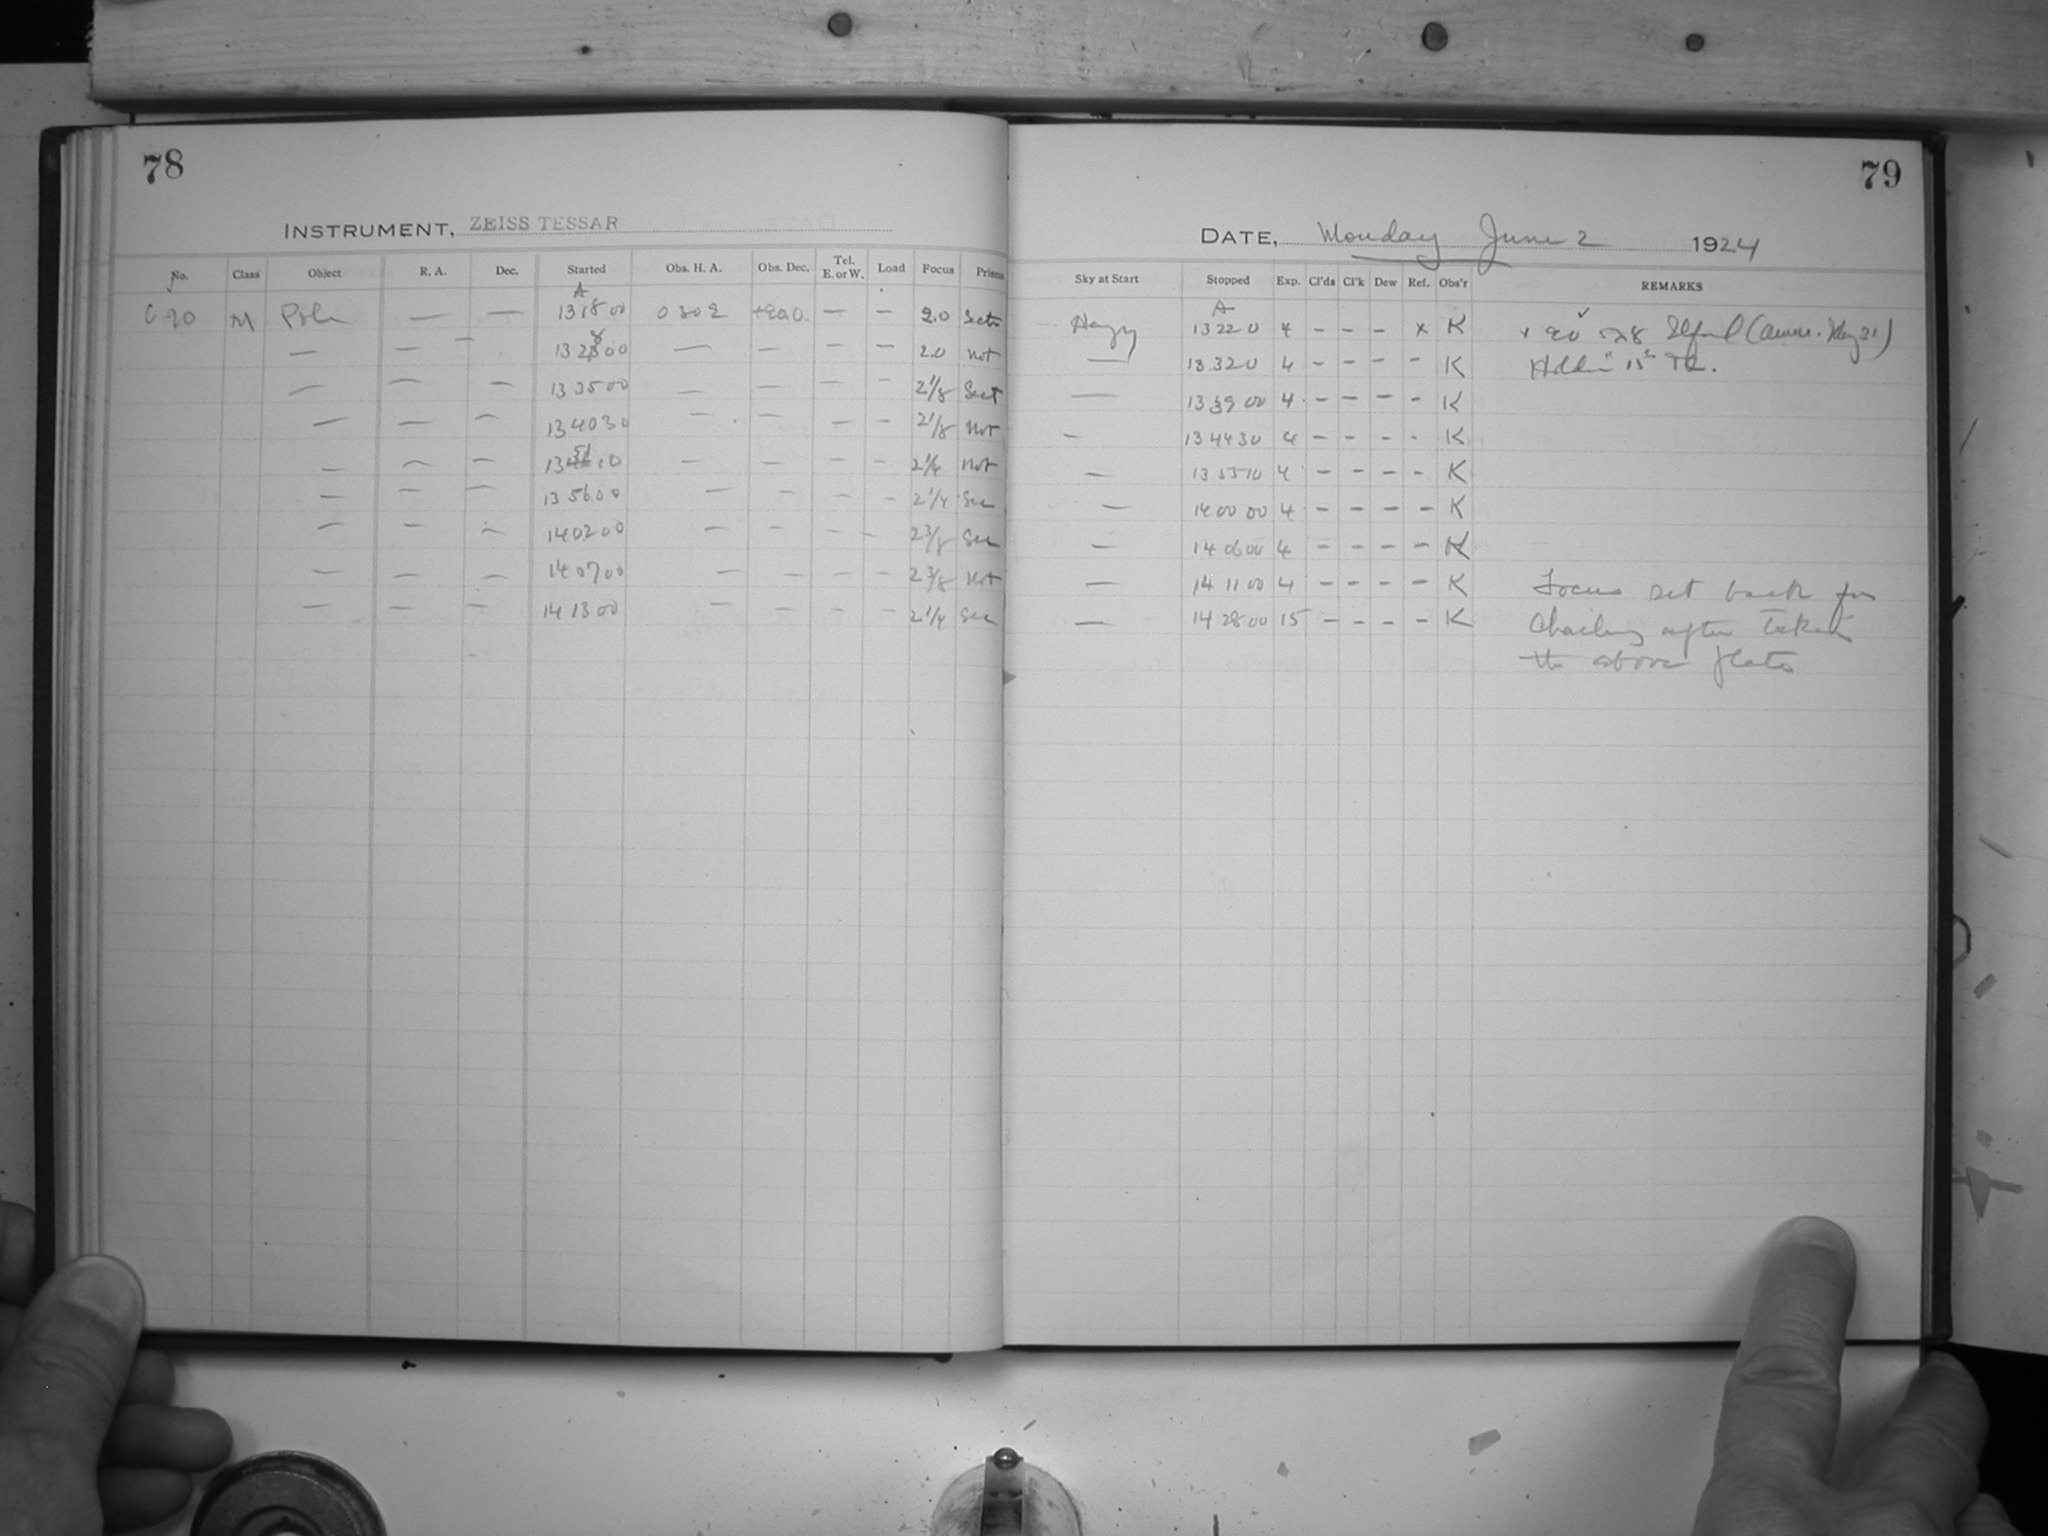 78
INSTRUMENT, ZEISS TESSAR
No. Class Object R. A. Dec. Started Obs. H. A. Obs. Dec. Tel. E. or W. Load Focus Prisms
A
C 90 M Pole — — 13 18 00 0 30 2 +90.0 — — 2.0
— — — 13 28 00 — — — — 2.0 not
— — — 13 35 00 — — — — 2 1/8 Sect
— — — 13 40 30 — — — — 2 1/8 Not
— — — 13 51 10 — — — — 2 1/4 Not
— — — 13 56 00 — — — — 2 1/4 Sec
— — — 14 02 00 — — — — 2 3/8 Sec
— — — 14 07 00 — — — — 2 3/8 Not
— — — 14 13 00 — — — — 2 1/4 Sec
79
DATE, Monday June 2 1924
Sky at Start Stopped Exp. Cl'ds Cl'k Dew Ref. Obs'r REMARKS
A
Hazy 13 22 0 4 - - - x K x 90 5x8 Ilford (
— 13 32 0 4 - - - - K
— 13 39 00 4 - - - - K
— 13 44 30 4 - - - - K
— 13 55 10 4 - - - - K
— 14 00 00 4 - - - - K
— 14 06 00 4 - - - - K
— 14 11 00 4 - - - - K Focus set back for
— 14 28 00 15 - - - - K after taken
the above plate